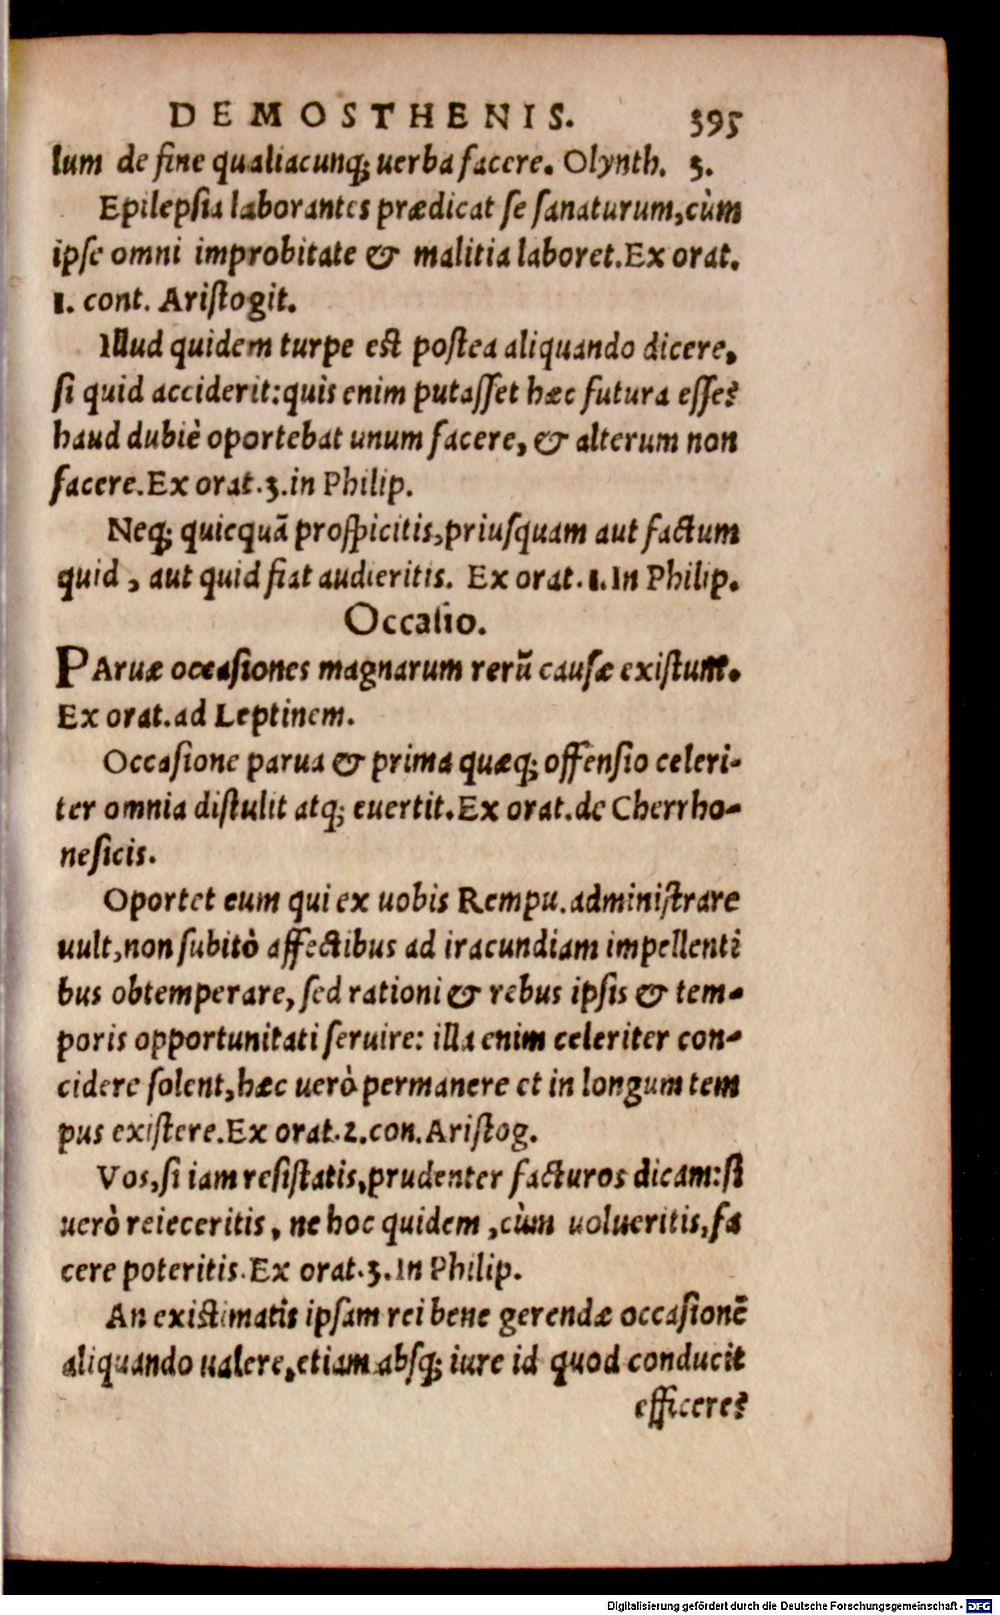 DEMOSTHENIS. 395
lum de fine qualiacunq; uerba facere. Olynth. 3.
Epilepsia laborantes prædicat se sanaturum, cùm
ipse omni improbitate & malitia laboret. Ex orat.
1. cont. Aristogit.
Illud quidem turpe est postea aliquando dicere,
si quid acciderit: quis enim putasset hæc futura esse?
haud dubiè oportebat unum facere, & alterum non
facere. Ex orat. 3. in Philip.
Neq; quicquā prospicitis, priusquam aut factum
quid, aut quid fiat audieritis. Ex orat. 1. In Philip.
Occasio.
PAruæ occasiones magnarum rerū causæ existunt.
Ex orat. ad Leptinem.
Occasione parua & prima quæq; offensio celeri-
ter omnia distulit atq; euertit. Ex orat. de Cherrho-
nesicis.
Oportet eum qui ex uobis Rempu. administrare
uult, non subitò affectibus ad iracundiam impellenti
bus obtemperare, sed rationi & rebus ipsis & tem-
poris opportunitati seruire: illa enim celeriter con-
cidere solent, hæc uerò permanere et in longum tem
pus existere. Ex orat. 2. con. Aristog.
Vos, si iam resistatis, prudenter facturos dicam: si
uerò reieceritis, ne hoc quidem, cùm uolueritis, fa
cere poteritis. Ex orat. 3. In Philip.
An existimatis ipsam rei bene gerendæ occasionē
aliquando ualere, etiam absq; iure id quod conducit
efficere?
Digitalisierung gefördert durch die Deutsche Forschungsgemeinschaft - DFG